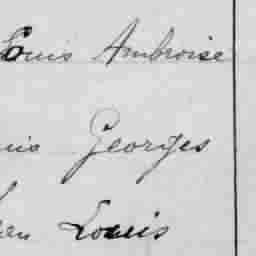 Louis Ambroise
Georges
Louis